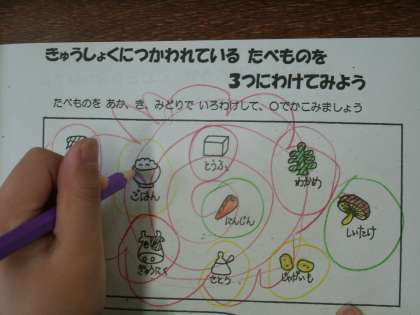 きゅうしょくにつかわれている たべものを
3つにわけてみよう
たべものを あか、き、みどりで いろわけして、○でかこみましょう
ごはん
とうふ
わかめ
にんじん
しいたけ
ぎゅうにく
さとう
じゃがいも